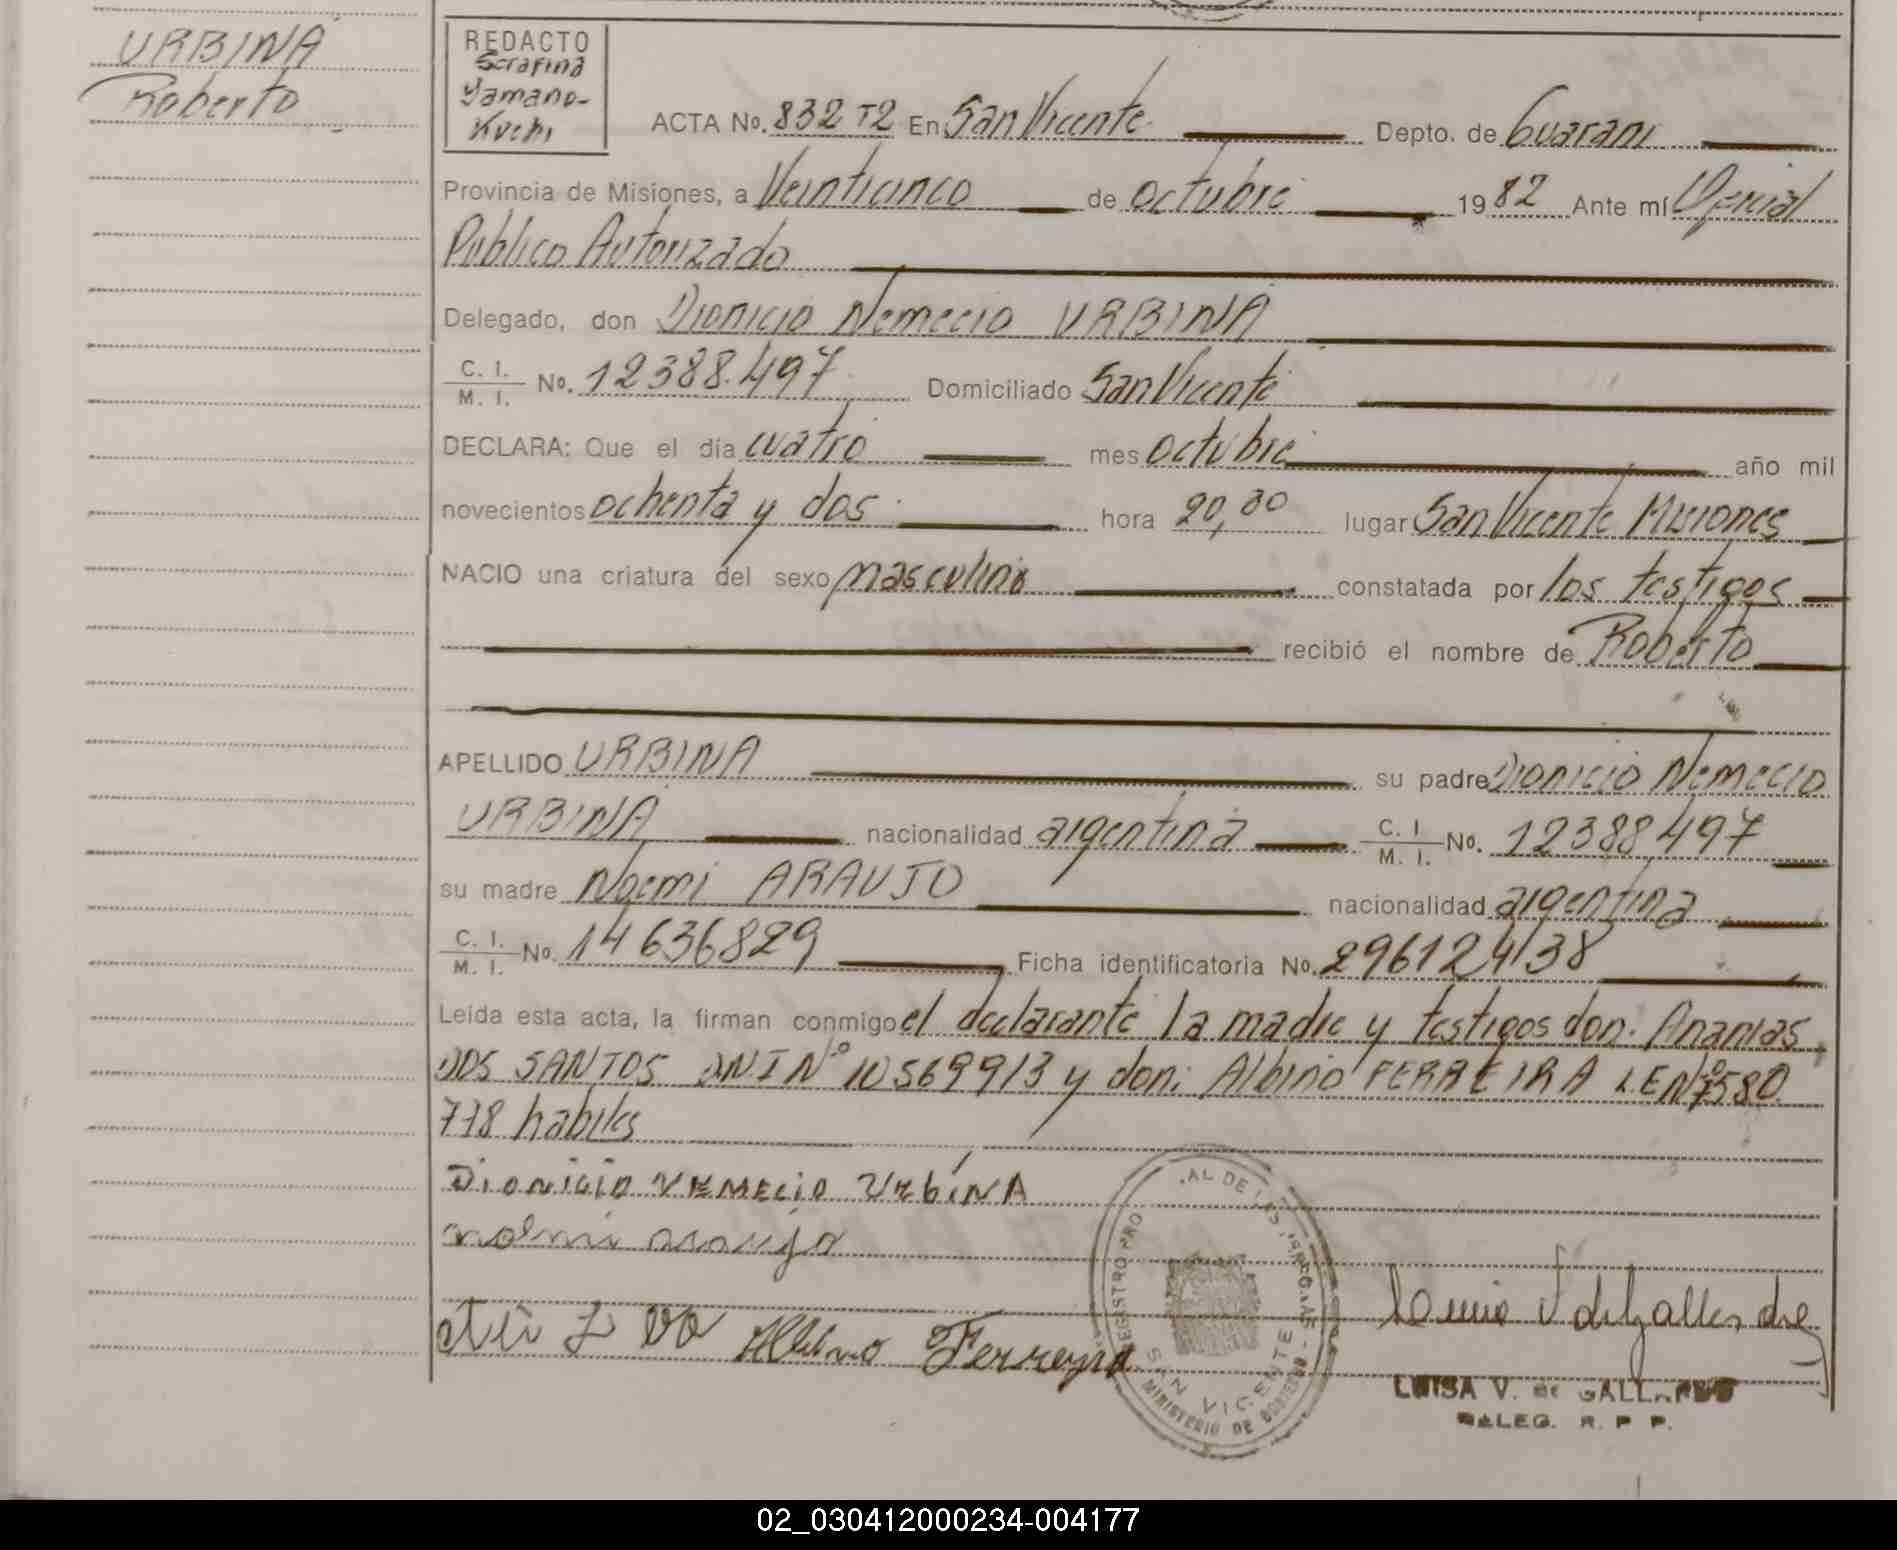 URBINA
Roberto
REDACTO
Serafina
Yamano-
Kuchi
ACTA No. 832 T2 En San Vicente Depto. de Guarani
Provincia de Misiones, a Veinticinco de octubre 1982 Ante mí Oficial
Publico Autorizado
Delegado, don Dionicio Nemecio URBINA
C. I. / M. I. No. 12388.497 Domiciliado San Vicente
DECLARA: Que el día cuatro mes octubre año mil
novecientos ochenta y dos hora 20,30 lugar San Vicente Misiones
NACIO una criatura del sexo masculino constatada por los testigos
recibió el nombre de Roberto
APELLIDO URBINA su padre Dionicio Nemecio
URBINA nacionalidad argentina C. I / M. I. No. 12388497
su madre Noemi ARAUJO nacionalidad argentina
C. I. / M. I. No. 14636829 Ficha identificatoria No. 296124138
Leída esta acta, la firman conmigo el declarante la madre y testigos don. Ananias
DOS SANTOS DNI Nº 10569913 y don: Albino FERREIRA L.E Nº 7580
778 habiles
Dionicio Nemecio Urbina
noemi araujo
Albino Ferreyra
REGISTRO PRO AL DE LAS PERSONAS
SAN VICENTE
MINISTERIO DE GOBIERNO
LUISA V. de GALLARDO
DELEG. R. P P.
02_030412000234-004177